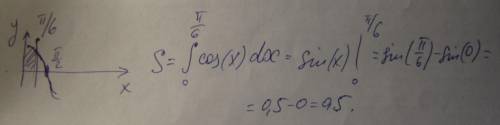 y
π/6
π/2
x
S = ∫₀^(π/6) cos(x) dx = sin(x) |₀^(π/6) = sin(π/6) - sin(0) =
= 0,5 - 0 = 0,5.